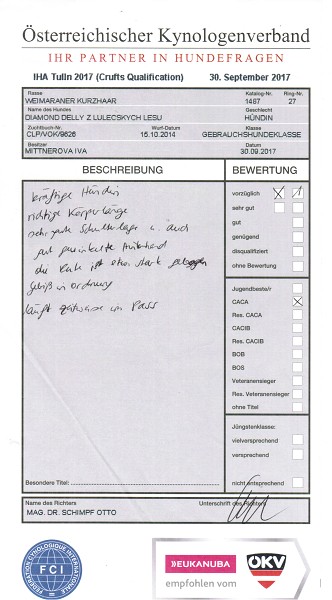 Österreichischer Kynologenverband
IHR PARTNER IN HUNDEFRAGEN
IHA Tulln 2017 (Crufts Qualification) 30. September 2017
Rasse Katalog-Nr. Ring-Nr.
WEIMARANER KURZHAAR 1487 27
Name des Hundes Geschlecht
DIAMOND DELLY Z LULECSKYCH LESU HÜNDIN
Zuchtbuch-Nr. Wurf-Datum Klasse
CLP/VOK/9626 15.10.2014 GEBRAUCHSHUNDEKLASSE
Besitzer Datum
MITTNEROVA IVA 30.09.2017
BESCHREIBUNG BEWERTUNG
kräftige Hündin
richtige Körperlänge
sehr gute Schulterlage u. auch
gut gewinkelte Hinterhand
die Rute ist etwas stark gebogen
Gebiß in Ordnung
läuft zeitweise im Pass
vorzüglich
sehr gut
gut
genügend
disqualifiziert
ohne Bewertung
Jugendbeste/r
CACA
Res. CACA
CACIB
Res. CACIB
BOB
BOS
Veteranensieger
Res. Veteranensieger
ohne Titel
Jüngstenklasse:
vielversprechend
versprechend
nicht entsprechend
Besondere Titel:
Name des Richters Unterschrift des Richters
MAG. DR. SCHIMPF OTTO
FEDERATION CYNOLOGIQUE INTERNATIONALE
FCI
EUKANUBA
empfohlen vom
ÖKV